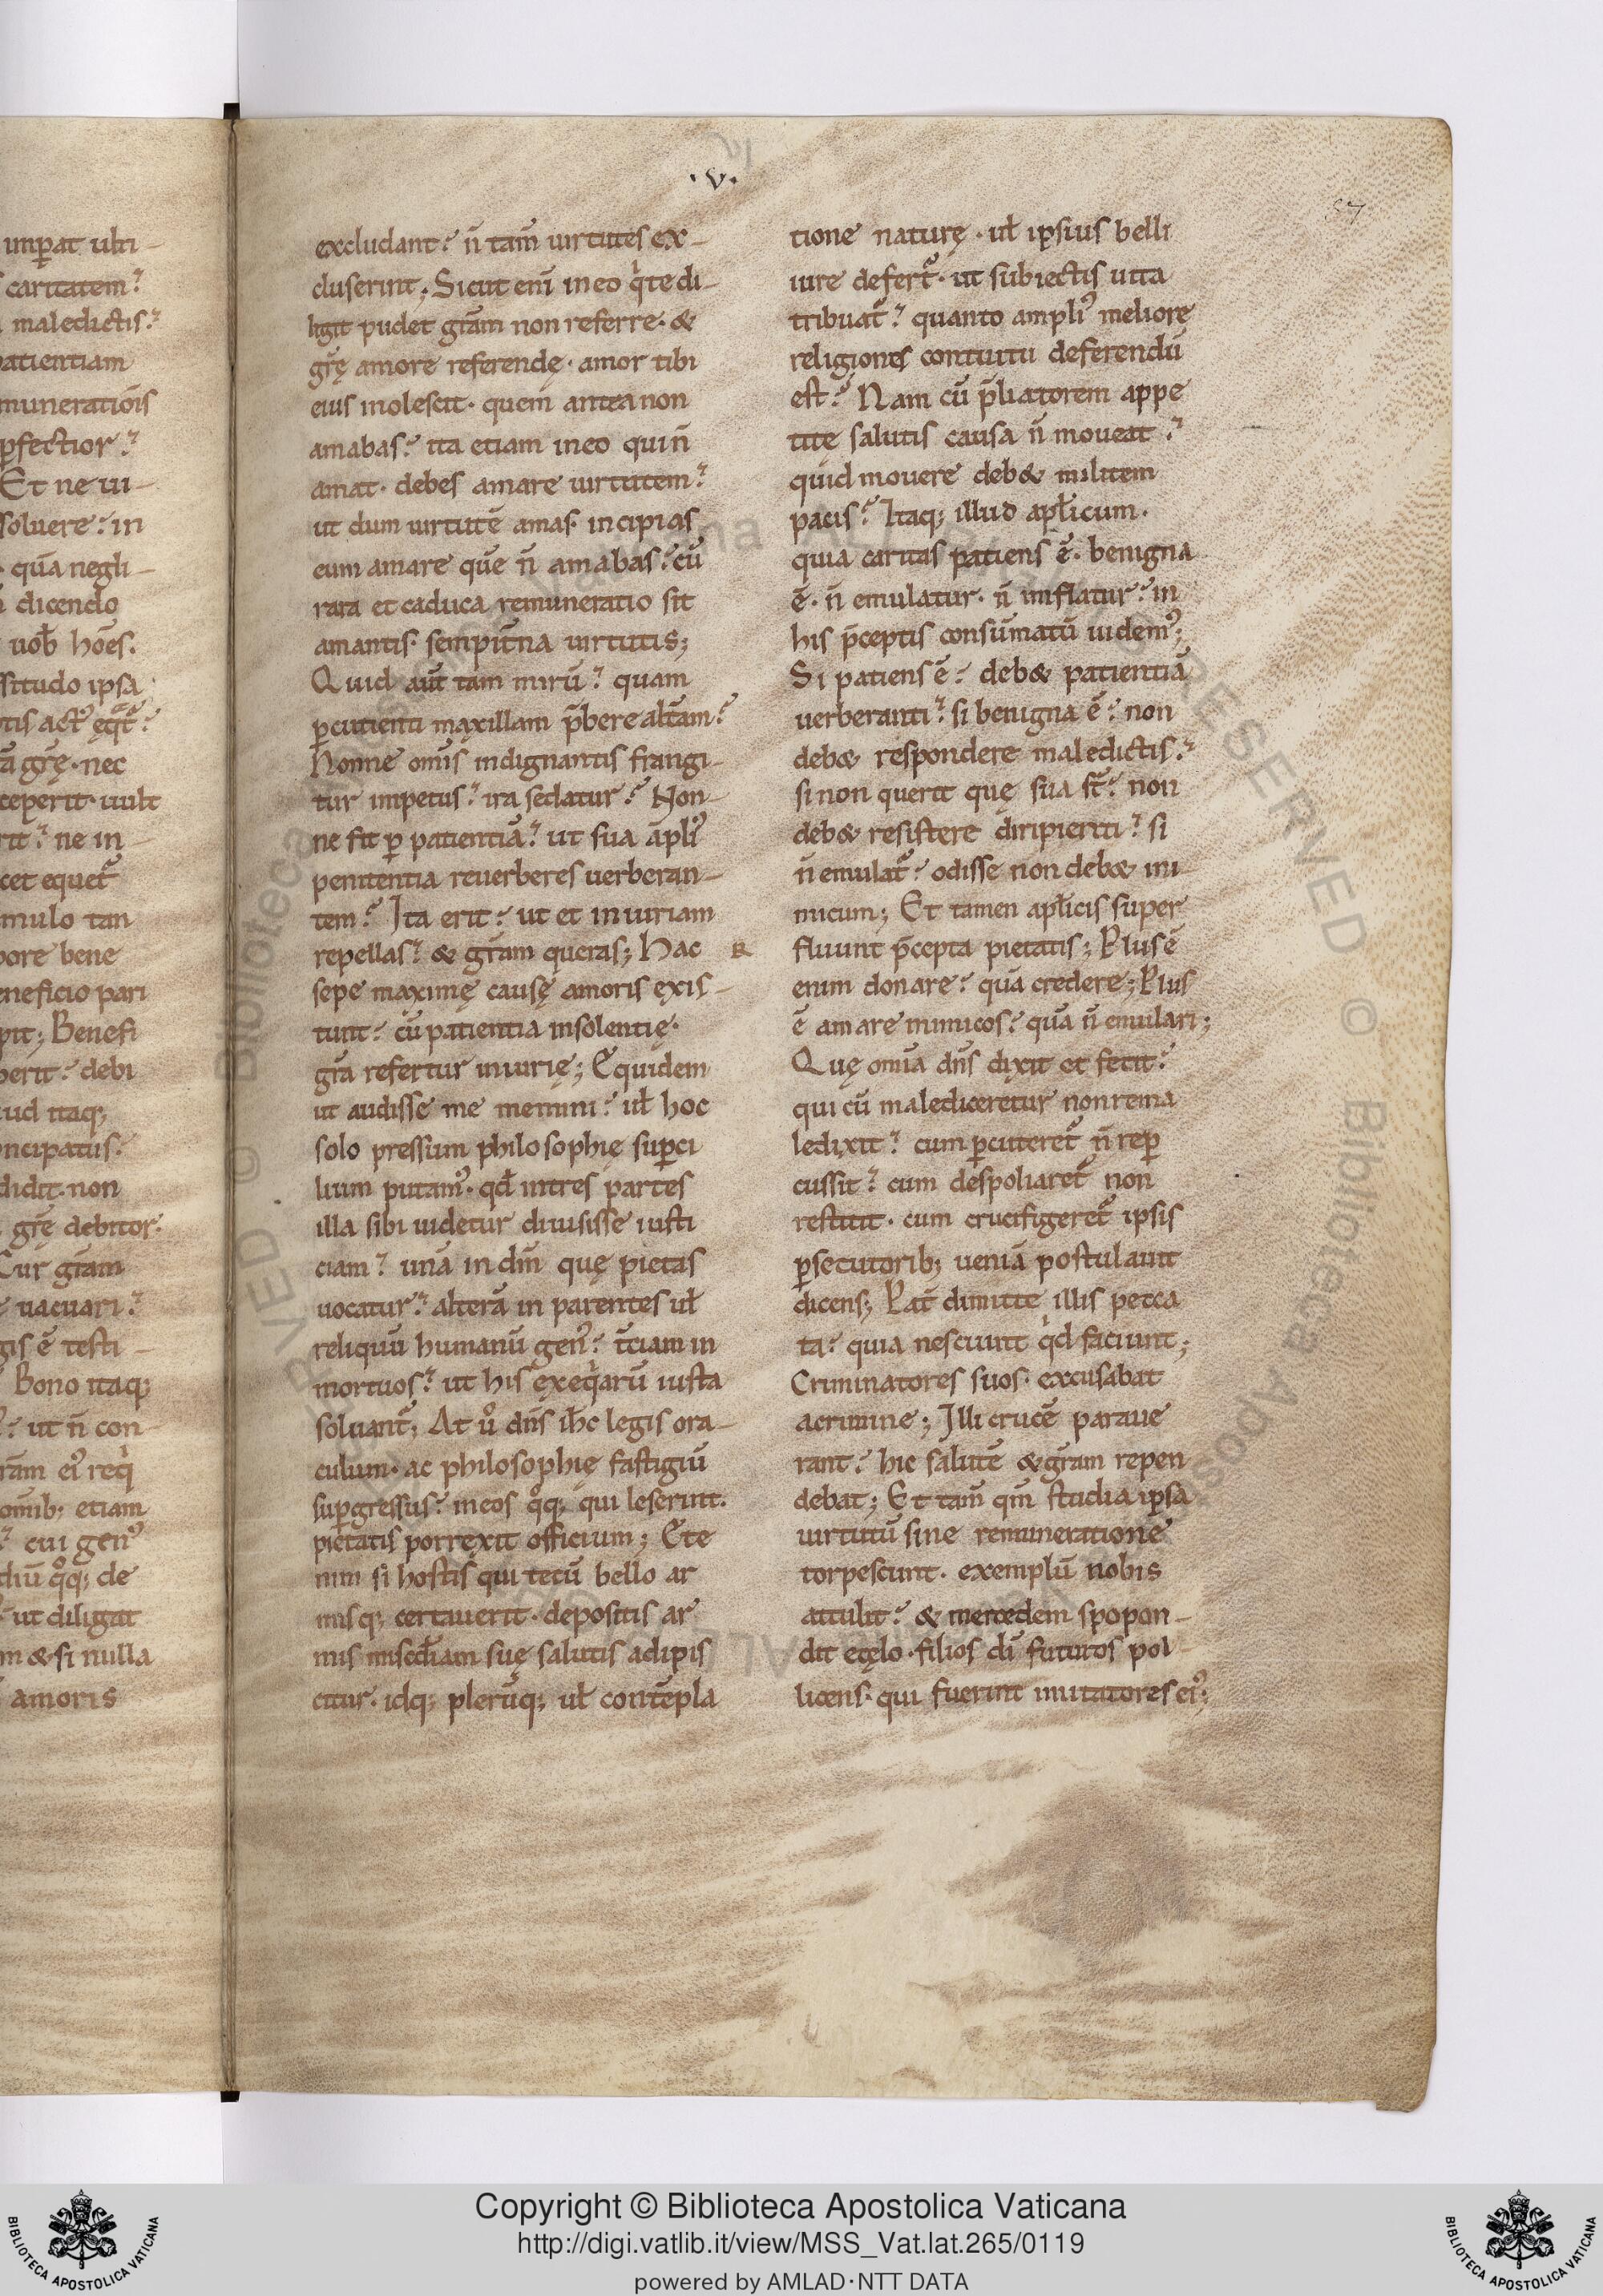 .v.
57
unꝑat ulti-
caritatem.
maledictis.
patientiam
munerationis
ꝑfectior.
Et ne ui-
soluere. in
quā negli-
dicendo
uob hoēs.
situdo ipsa
tis act᾽ ęqt᾽
ā grę. nec
ceperit. uult
rit. ne in
cet equet᾽
mulo tan
pore bene
eneficio pari
pit; Benefi
perit. debi
ud itaq;
ncipatus.
didit. non
grę debitor.
Cur grām
uacuari.
gis ē testi-
Bono itaq;
ut n̄ con-
rām ei᾽ req
omīb; etiam
cui gen᾽
diū qq; de
ut diligat
m & si nulla
amoris
excludant. n̄ tam̄ uirtutes ex-
cluserint; Sicut enī in eo qi te di-
ligit pudet grām non referre. &
grę amore referendę. amor tibi
eius inolescit. quem antea non
amabas. ita etiam in eo qui n̄
amat. debes amare uirtutem.
ut dum uirtutē amas. incipias
eum amare quē n̄ amabas. cū
rara et caduca remuneratio sit
amantis. sempit̄na uirtutis;
Quid aut̄ tam mirū. quam
ꝑcutienti maxillam p̄bere alt̄am.
Nonne omīs indignantis frangi-
tur impetus. ira sedatur. Non-
ne fit ꝑ patientiā. ut sua āpli᾽
penitentia reuerberes uerberan-
tem. Ita erit. ut et iniuriam
repellas. & grām queras; Hac
sepe maximę causę amoris exis-
tunt. cū patientia insolentię.
grā refertur iniurię; Equidem
ut audisse me memini. ul̄ hoc
solo pressum philosophię suꝑci
lium putam᾽. qd̄ in tres partes
illa sibi uidetur diuisisse iusti
ciam. unā in dm̄ quę pietas
uocatur. alterā in parentes ul̄
reliquū humanū gen᾽. t̄ciam in
mortuos. ut his exeqiarū iusta
soluant᾽; At uo dn̄s ih̄c legis ora-
culum. ac philosophię fastigiū
suꝑgressus. in eos qoq; qui leserint.
pietatis porrexit officium; Ete
nim si hostis qui tecū bello ar
misq; certauerit. depositis ar
mis misc̄diam suę salutis adipis
citur. idq; plerūq; ul̄ contēpla
R
tione naturę. ul̄ ipsius belli
iure defert᾽. ut subiectis uita
tribuat᾽. quanto ampli᾽ meliore
religionis contuitu deferendū
est. Nam cū p̄liatorem appe
titę salutis causa n̄ moueat.
quid mouere deb& militem
pacis. Itaq; illud apl̄icum.
quia caritas patiens ē. benigna
ē. n̄ emulatur. n̄ inflatur. in
his p̄ceptis consūmatū uidem᾽;
Si patiens ē. deb& patientiā
uerberanti. si benigna ē. non
deb& respondere maledictis.
si non querit quę sua st̄. non
deb& resistere diripienti. si
n̄ emulat᾽. odisse non deb& ini
micum; Et tamen apl̄icis super
fluunt p̄cepta pietatis; Plus ē
enim donare. quā credere; Plus
ē amare inimicos. quā n̄ emulari;
Quę omīa dn̄s dixit et fecit.
qui cū malediceretur non rema
ledixit. cum ꝑcuteret᾽ n̄ reꝑ
cussit. cum despoliaret᾽ non
restitit. cum crucifigeret᾽ ipsis
ꝑsecutorib; ueniā postulauit
dicens; Pat̄ dimitte illis pecca
ta. quia nesciunt qid faciunt;
Criminatores suos. excusabat
a crimine; Illi crucē paraue
rant. hic salutē & grām repen
debat; Et tam̄ qm̄ studia ipsa
uirtutū sine remuneratione
torpescunt. exemplū nobis
attulit. & mercedem spopon-
dit e cęlo. filios di futuros pol-
licens. qui fuerint imitatores ei᾽;
Copyright © Biblioteca Apostolica Vaticana
http://digi.vatlib.it/view/MSS_Vat.lat.265/0119
powered by AMLAD·NTT DATA
BIBLIOTECA APOSTOLICA VATICANA
BIBLIOTECA APOSTOLICA VATICANA